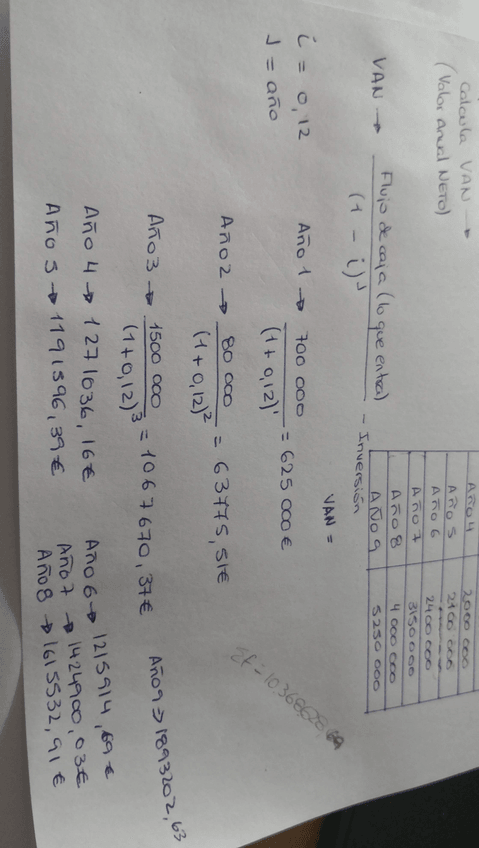 Calcula VAN →
(Valor Anual NETO)
VAN → Flujo de caja (lo que entra)
(1 - i)ᴶ
- Inversión
i = 0,12
J = año
VAN =
Año 1 → 700 000
(1+0,12)¹
= 625 000 €
Año 2 → 80 000
(1+0,12)²
= 63775,51€
Año 3 → 1500 000
(1+0,12)³
= 1067670,37€
Año 4 → 1271036,16€
Año 5 → 1191596,39€
Año 6 → 1215914,69€
Año 7 → 1424900,03€
Año 8 → 1615532,91€
Año 9 → 1893202,63
Año 4 2000 000
Año 5 2100 000
Año 6 2400 000
Año 7 3150 000
Año 8 4 000 000
AÑO 9 5250 000